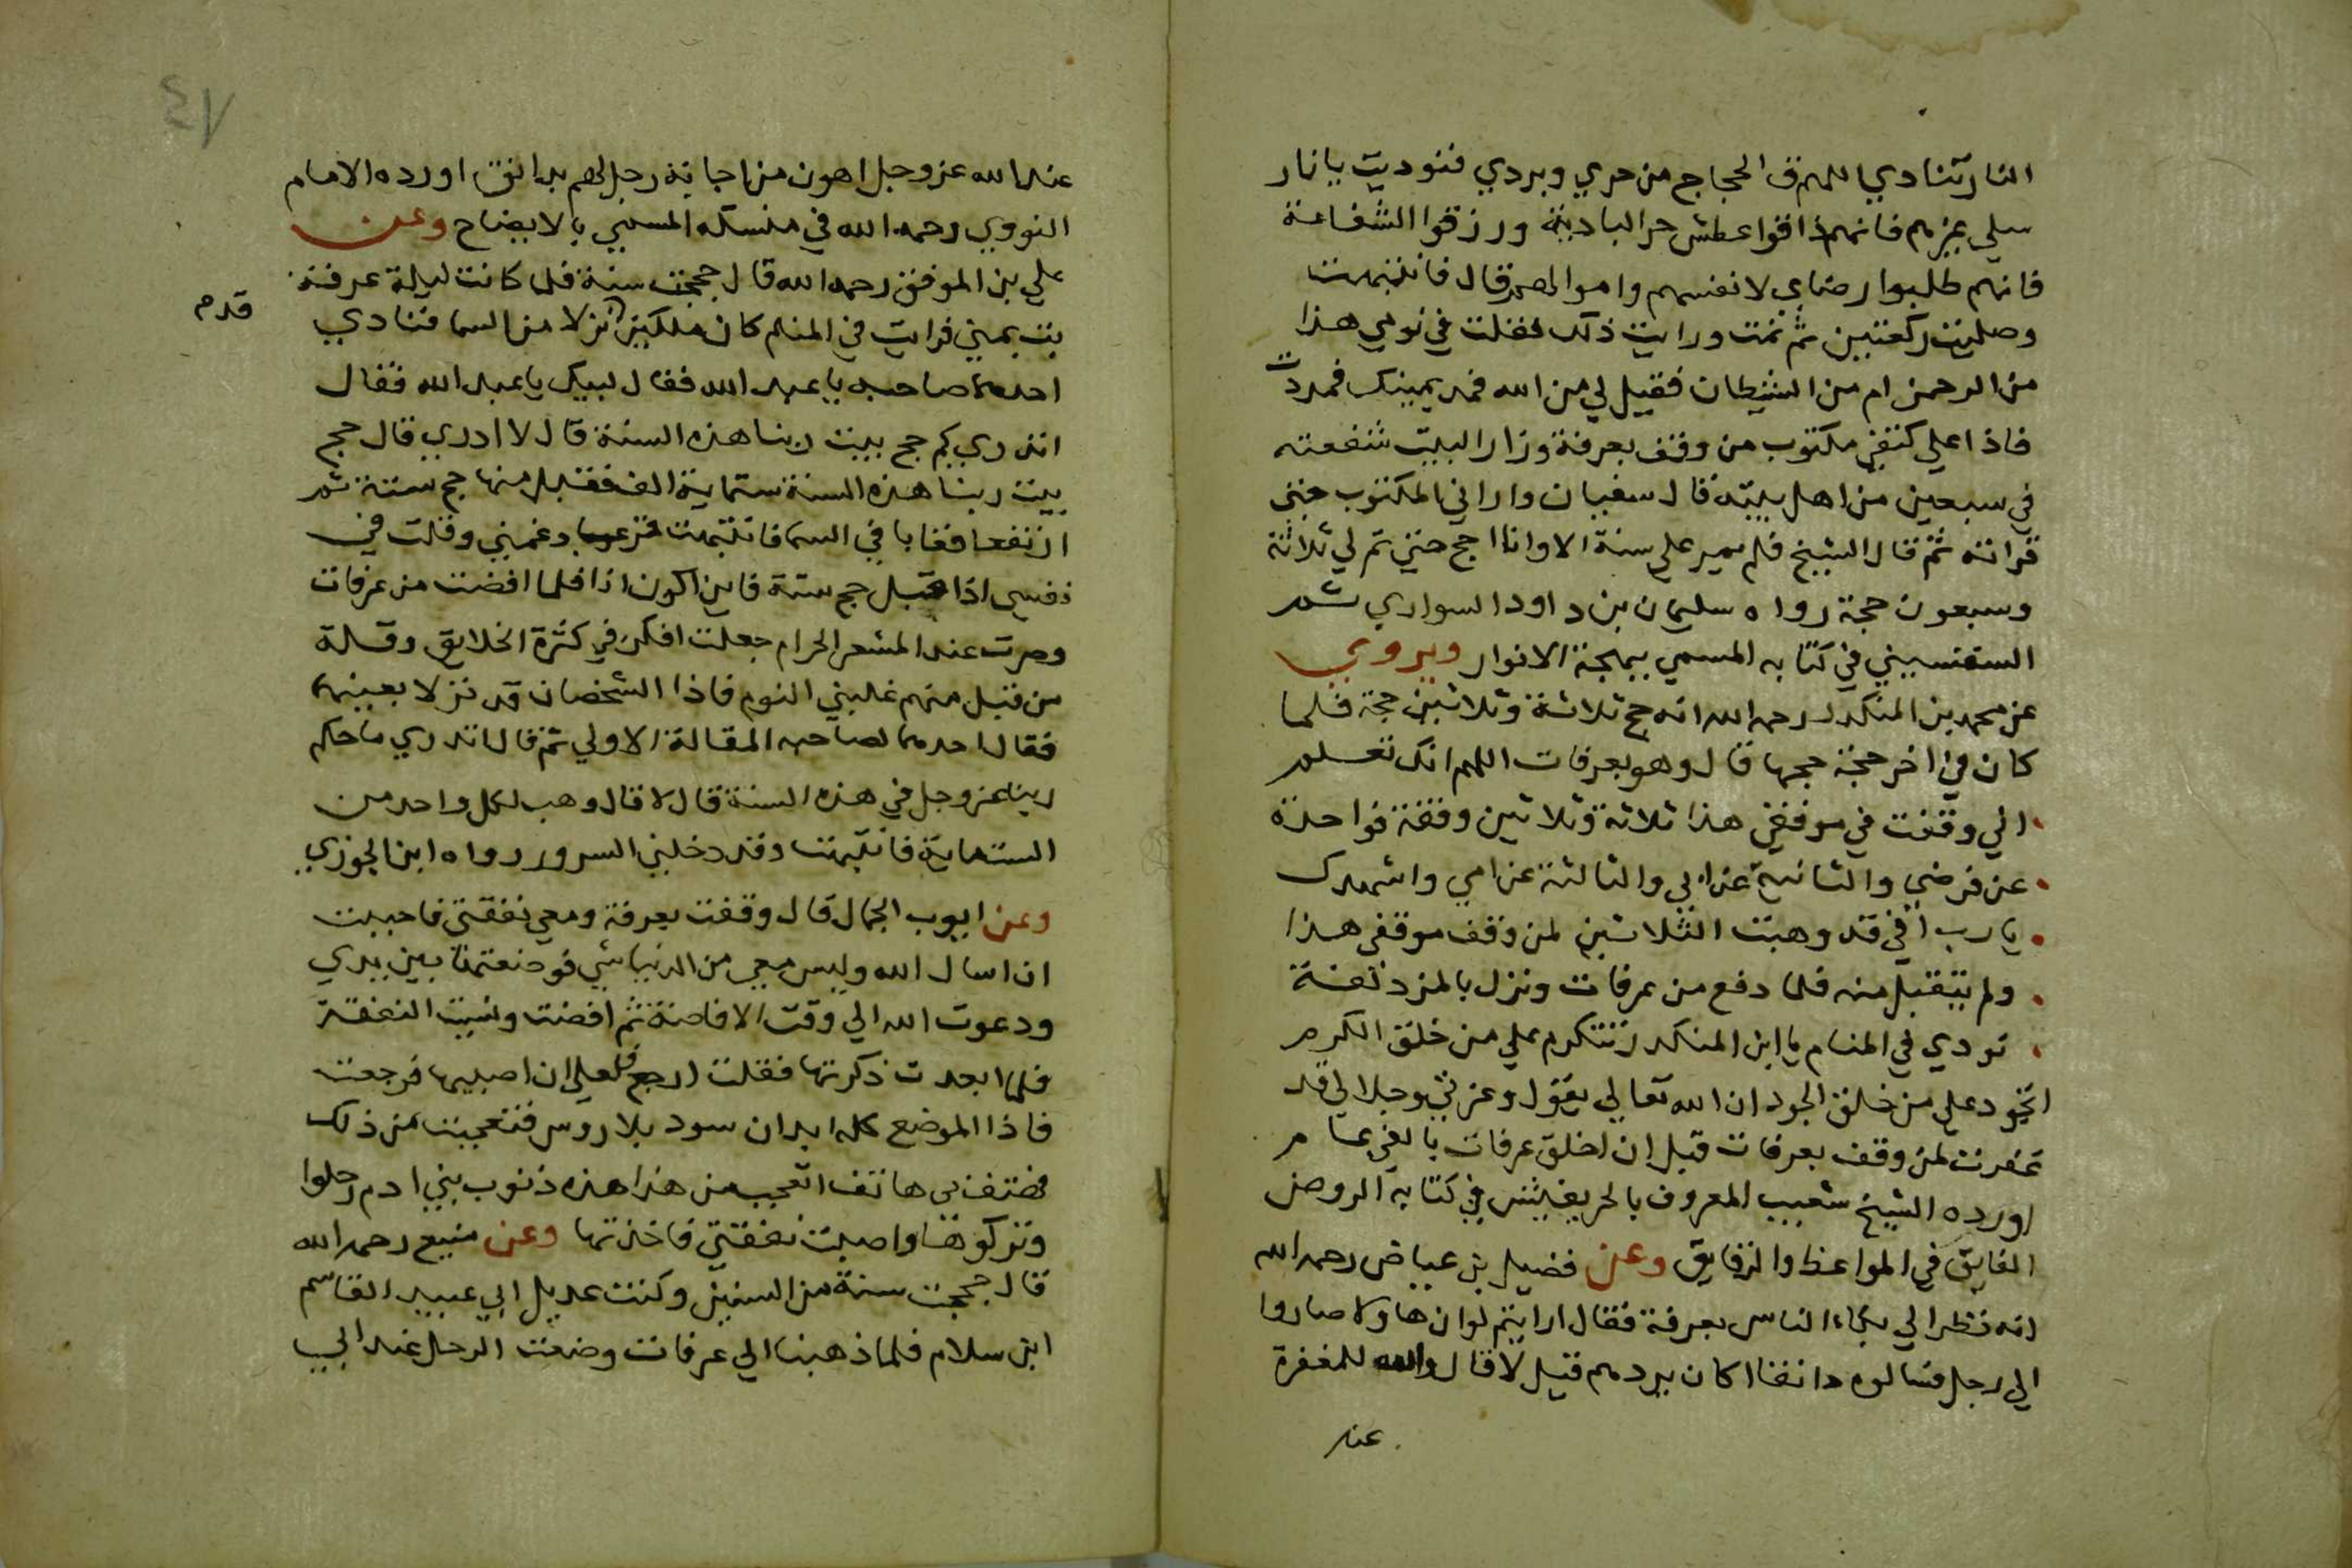 النار تنادي اللهم ق الحجاج من حري وبردي فنوديت يا نار
سلي غيرهم فانهم ذاقوا عطش حر البادية ورزقوا الشفاعة
فانهم طلبوا رضاي لانفسهم واموالهم قال فانتبهت
وصليت ركعتين ثم نمت ورايت ذلك فقلت في نومي هذا
من الرحمن ام من الشيطان فقيل لي من الله فمد يمينك فمددت
فاذا علي كتفي مكتوب من وقف بعرفة وزار البيت شفعته
في سبعين من اهل بيته قال سفيان واراني المكتوب حتي
قراته ثم قال الشيخ فلم يمر علي سنة الا وانا احج حتي تم لي ثلاثة
وسبعون حجة رواه سليمان بن داود السواري ثم
السقسيني في كتابه المسمي ببهجة الانوار ويروي
عن محمد بن المنكدر رحمه الله انه حج ثلاثة وثلاثين حجة فلما
كان في اخر حجة حجها قال وهو بعرفات اللهم انك تعلم
اني وقفت في موقفي هذا ثلاثة وثلاثين وقفة فواحدة
عن فرضي والثانية عن ابي والثالثة عن امي واشهدك
يا رب اني قد وهبت الثلاثين لمن وقف موقفي هذا
ولم يتقبل منه فلما دفع من عرفات ونزل بالمزدلفة
نودي في المنام يا ابن المنكدر تتكرم علي من خلق الكرم
اتجود علي من خلق الجود ان الله تعالي يقول وعزتي وجلالي قد
غفرت لمن وقف بعرفات قبل ان اخلق عرفات بالفي عام
اورده الشيخ شعيب المعروف بالحريفيش في كتابه الروض
الفايق في المواعظ والرقايق وعن فضيل بن عياض رحمه الله
انه نظر الي بكاء الناس بعرفة فقال ارايتم لو ان هاولا صاروا
الي رجل فسالوه دانقا اكان يردهم قيل لا قال والله للمغفرة
عند
٤٧
عند الله عز وجل اهون من اجابة رجل لهم بدانق اورده الامام
النووي رحمه الله في منسكه المسمي بالايضاح وعن
علي بن الموفق رحمه الله قال حججت سنة فلما كانت ليلة عرفة
بت بمني فرايت في المنام كان ملكين نزلا من السما فنادي
قدم
احدهما صاحبه يا عبد الله فقال لبيك يا عبد الله فقال
اتدري كم حج بيت ربنا هذه السنة قال لا ادري قال حج
بيت ربنا هذه السنة ستماية الف فقبل منها حج ستة ثم
ارتفعا فغابا في السما فانتبهت فزعا وغمني وقلت في
نفسي اذا قبل حج ستة فاين اكون انا فلما افضت من عرفات
وصرت عند المشعر الحرام جعلت افكر في كثرة الخلايق وقلة
من قبل منهم غلبني النوم فاذا الشخصان قد نزلا بعينهما
فقال احدهما لصاحبه المقالة الاولي ثم قال اتدري ما حكم
ربنا عز وجل في هذه السنة قال لا قال وهب لكل واحد من
الستة ماية فانتبهت وقد دخلني السرور رواه ابن الجوزي
وعن ايوب الجمال قال وقفت بعرفة ومعي نفقتي فاحببت
ان اسال الله وليس معي من الدنيا شي فوضعتها بين يدي
ودعوت الله الي وقت الافاضة ثم افضت ونسيت النفقة
فلما ابعدت ذكرتها فقلت ارجع فلعلي ان اصيبها فرجعت
فاذا الموضع كله ابدان سود بلا روس فتعجبت من ذلك
فهتف بي هاتف اتعجب من هذا هذه ذنوب بني ادم رحلوا
وتركوها واصبت نفقتي فاخذتها وعن منيع رحمه الله
قال حججت سنة من السنين وكنت عديل ابي عبيد القاسم
ابن سلام فلما ذهبنا الي عرفات وضعت الرحل عند ابي